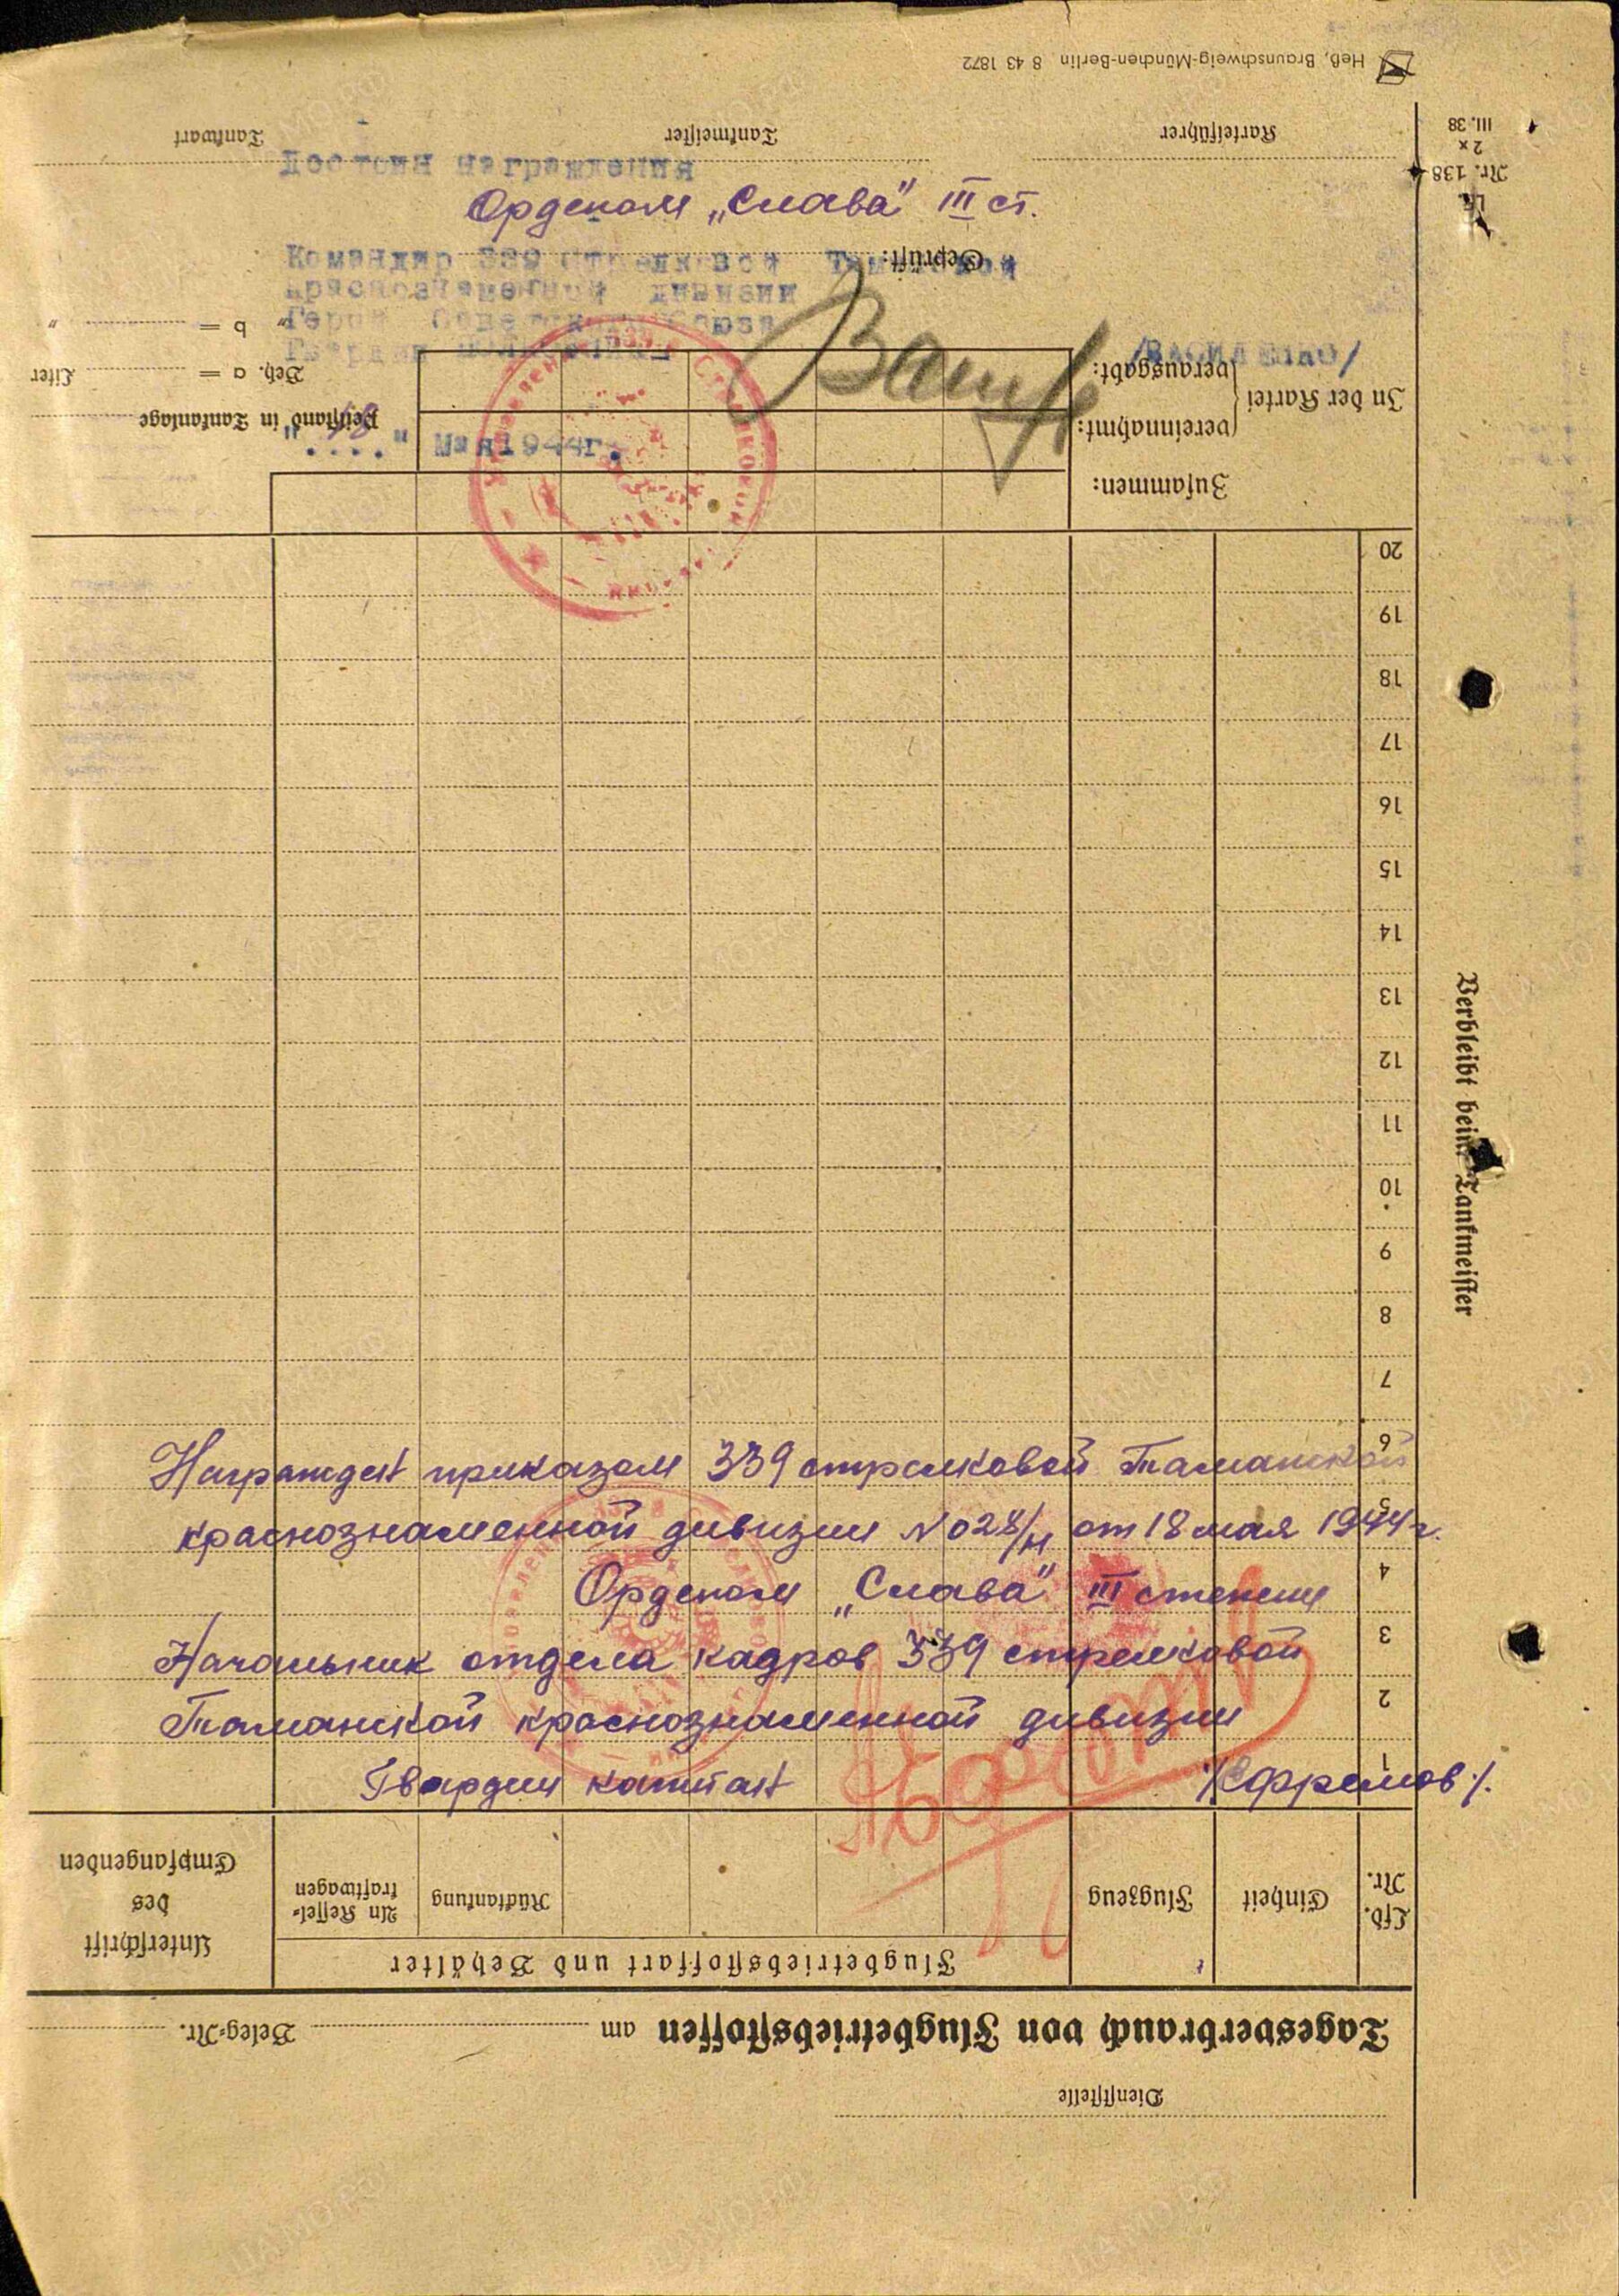 Heß, Braunschweig-München-Berlin 8 43 1872
LF.
Nr. 138
2 x
III. 38
Kartelführer
Tankmeister
Tankwart
Достоин награждения
Орденом „Слава" III ст.
Geprüft:
Командир 339 Стрелковой Таманской
Краснознаменной дивизии
Героя Советского Союза
Гвардии полковник
/ВАСИЛЕНКО/
" b =
"
Beh. a =
Liter
Peilstand in Tankanlage
"18" Мая 1944г.
In der Kartei
verausgabt:
vereinnahmt:
Zusammen:
20
19
18
17
16
15
14
13
12
11
10
9
8
7
6
5
4
3
2
1
Verbleibt beim Tankmeister
Награжден приказом 339 стрелковой Таманской
краснознаменной дивизии №028/н от 18 мая 1944 г.
Орденом „Слава" III степени
Начальник отдела кадров 339 стрелковой
Таманской краснознаменной дивизии
Гвардии капитан /Ефремов/.
Lfd. Nr.
Einheit
Flugzeug
Rücktankung
An Kessel-
kraftwagen
Unterschrift
des
Empfangenden
Flugbetriebsstoffart und Behälter
Tagesverbrauch von Flugbetriebsstoffen am
Beleg-Nr.
Dienststelle